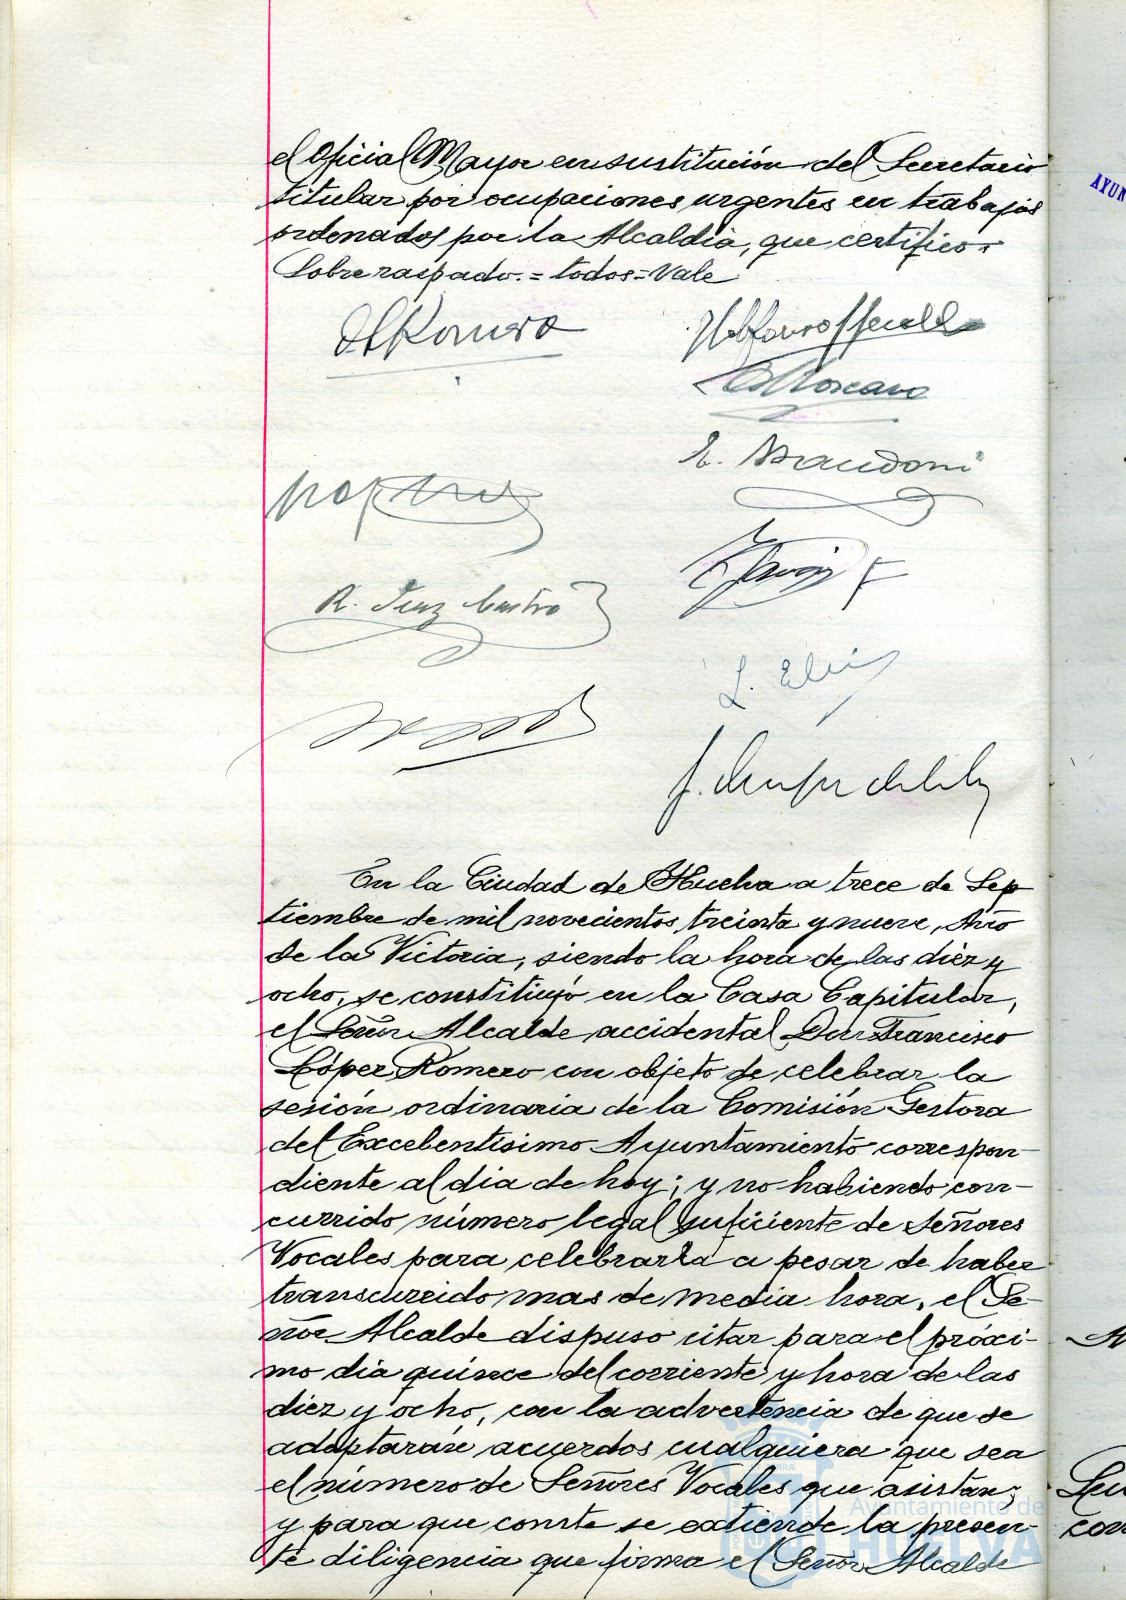 el Oficial Mayor en sustitución del Secretario
titular por ocupaciones urgentes en trabajos
ordenados por la Alcaldía, que certifico.
Sobre raspado. = todos = Vale
Romero
AYUN
E. Mandoni
R. Díaz Castro
En la Ciudad de Huelva a trece de Sep
tiembre de mil novecientos treinta y nueve, Año
de la Victoria, siendo la hora de las diez y
ocho, se constituyó en la Casa Capitular,
el Señor Alcalde accidental Don Francisco
López Romero con objeto de celebrar la
sesión ordinaria de la Comisión Gestora
del Excelentísimo Ayuntamiento correspon-
diente al día de hoy; y no habiendo con-
currido número legal suficiente de Señores
Vocales para celebrarla a pesar de haber
transcurrido mas de media hora, el Se-
ñor Alcalde dispuso citar para el próxi-
mo día quince del corriente y hora de las
diez y ocho, con la advertencia de que se
adoptarán acuerdos cualquiera que sea
el número de Señores Vocales que asistan;
y para que conste se extiende la presen-
te diligencia que firma el Señor Alcalde
Ayuntamiento de
HUELVA